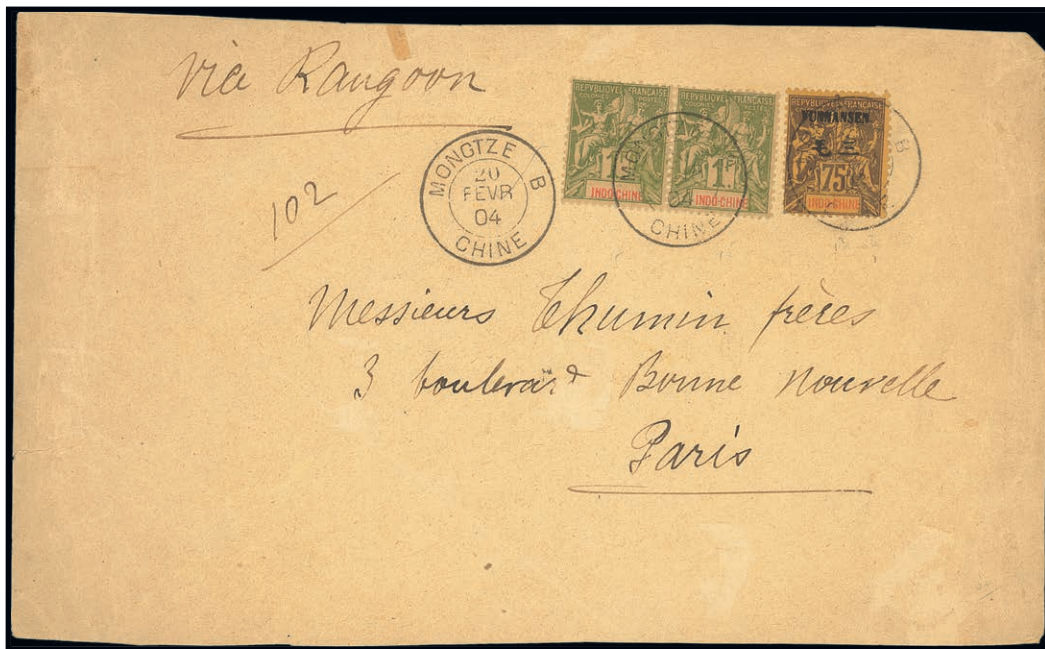 Via Rangoon
102
MONGTZE B
20
FEVR
04
CHINE
REPVBLIQVE FRANÇAISE
COLONIES POSTES
1
INDO-CHINE
REPVBLIQVE FRANÇAISE
1F
INDO-CHINE
MONGTZE
04
CHINE
REPVBLIQVE FRANÇAISE
YUNNANSEN
75
INDO-CHINE
B
Messieurs Thumin frères
3 boulevard Bonne Nouvelle
Paris